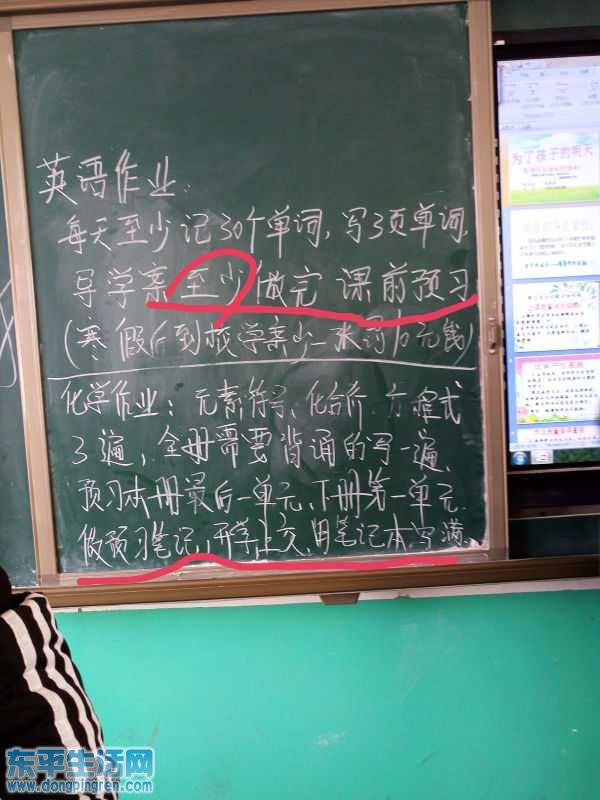 英语作业:
每天至少记30个单词,写3页单词,
导学案至少做完 课前预习
(寒假后到校学案少一张罚10元钱)
化学作业:元素符号、化合价、方程式
3遍,全册需要背诵的写一遍、
预习本册最后一单元、下册第一单元.
做预习笔记,开学上交,用笔记本,写满.
为了孩子的明天
东平生活网
www.dongpingren.com